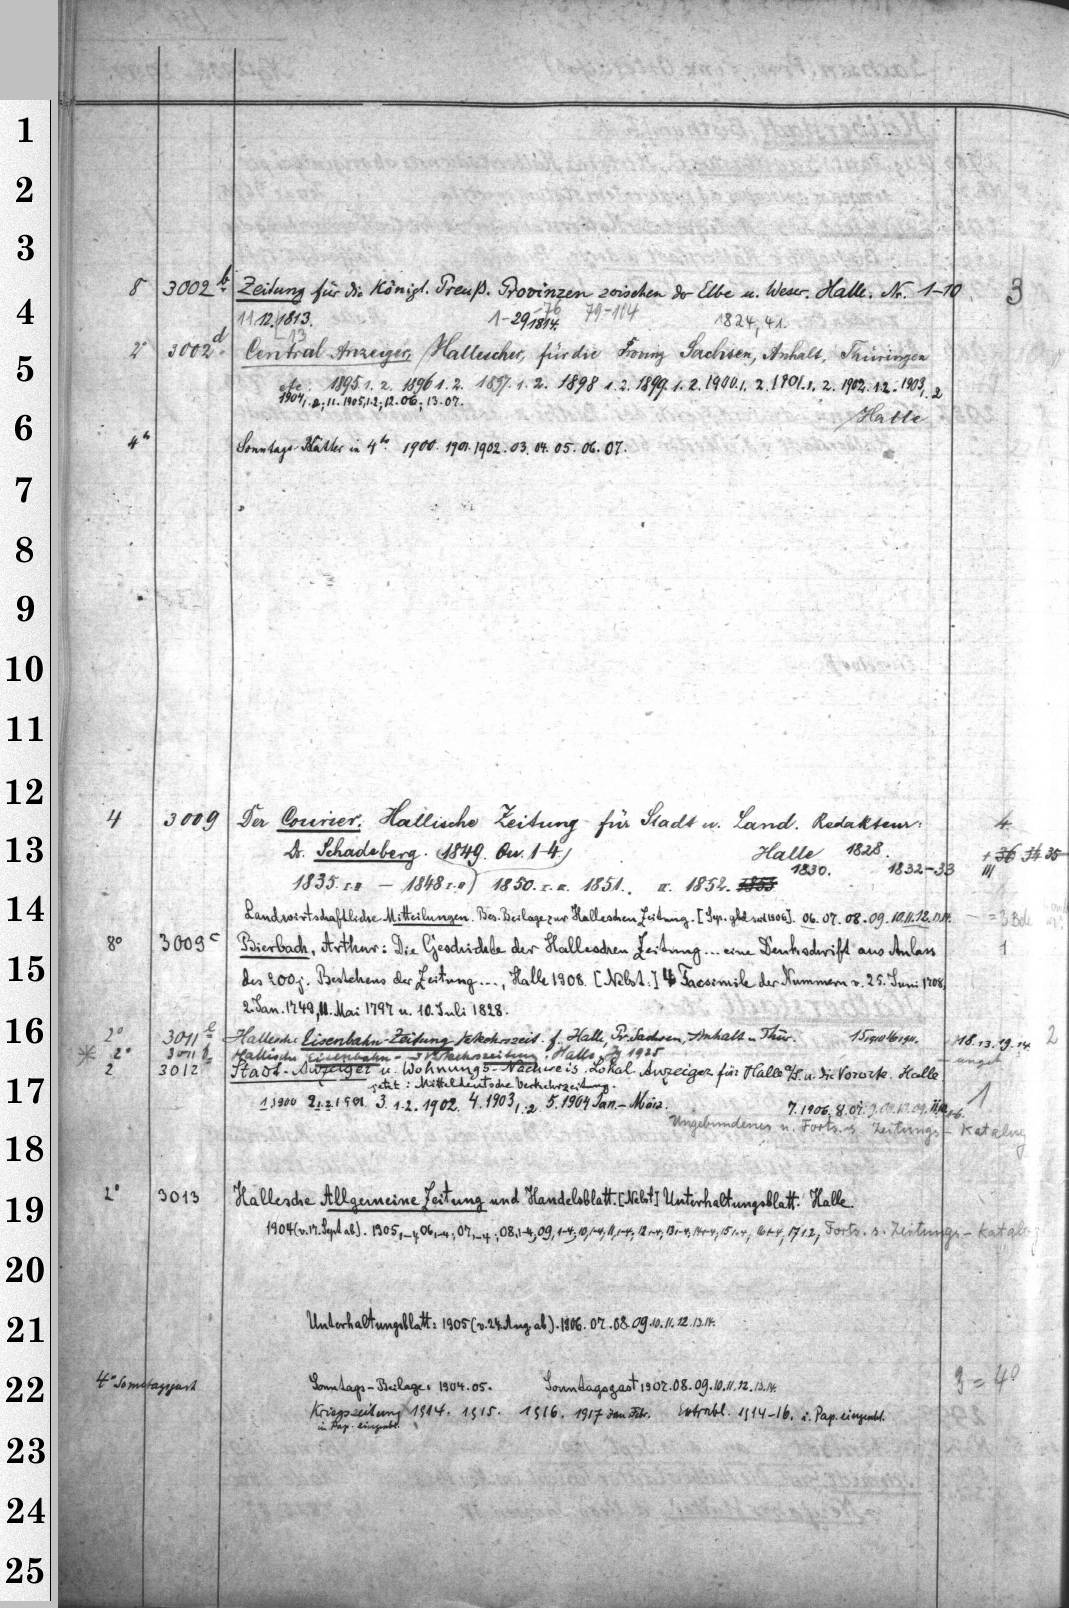 1
2
3
8 3002 b. Zeitung für die Königl. Preuß. Provinzen zwischen der Elbe u. Weser. Halle. Nr. 1-10 3
4
11.12.1813. 1-29 1814. -76 79-104 1824, 41.
5
2° 3002 d. Central Anzeiger, Hallescher, für die Provinz Sachsen, Anhalt, Thüringen
etc: 1895.1.2. 1896 1.2. 1897.1.2. 1898 1.2. 1899.1.2. 1900.1.2. 1901.1.2. 1902.1.2. 1903.1.2
1904,1.2; 11.1905,1.2; 12.06; 13.07.
6
Halle
4to Sonntags-Blätter in 4to. 1900. 1901. 1902. 03. 04. 05. 06. 07.
7
8
9
10
11
12
4 3009 Der Courier. Hallische Zeitung für Stadt u. Land. Redakteur: 4
13
Dr. Schadeberg. (1849. Qu. 1-4) Halle 1828. 1830. 1832-33
1835. I.II — 1848 I.II) 1850. I.II. 1851. II. 1852. 1853
14
Landwirtschaftliche Mitteilungen. Bes. Beilage zur Halleschen Zeitung. 06. 07. 08. 09. 10. 11. 12. 13. 14.
8° 3009 c Bierbach, Arthur: Die Geschichte der Halleschen Zeitung... eine Denkschrift aus Anlass 1
15
des 200j. Bestehens der Zeitung..., Halle 1908. [Nebst.] 4 Facsimile der Nummern v. 25. Juni 1708,
2. Jan. 1749, 11. Mai 1797 u. 10. Juli 1828.
16
2° 3011 Hallesche Eisenbahn-Zeitung Verkehrszeit. f. Halle, Pr. Sachsen, Anhalt u. Thür. 18.13.19.14. 2
* 2° 3011 Hallische Eisenbahn- u. Verkehrszeitung. Halle. Jg 1925 ungeb
2 3012 Stadt-Anzeiger u. Wohnungs-Nachweis. Lokal Anzeiger für Halle a/S. u. die Vororte. Halle
17
jetzt: Mitteldeutsche Verkehrszeitung.
1.1900 2.1.2.1901. 3.1.2. 1902. 4.1903,1.2. 5.1904 Jan.-März. 7.1906, 8.07. 1
Ungebundenes u. Forts. s. Zeitungs-Katalog
18
2° 3013 Hallesche Allgemeine Zeitung und Handelsblatt. [Nebst] Unterhaltungsblatt. Halle.
19
1904 (v. 17. Sept ab). 1905,1-4, 06,1-4, 07,1-4, 08,1-4, 09,1-4, 10,1-4, 11,1-4, 12 1-4, 13 1-4, 14 1-4, 15 1-4, 16 1-4, 17 1.2, Forts. s. Zeitungs-Katalog
20
21
Unterhaltungsblatt: 1905 (v. 24. Aug ab). 1906. 07. 08. 09. 10. 11. 12. 13. 14.
22
4° Sonntagsgast Sonntags-Beilage: 1904. 05. Sonntagsgast 1907. 08. 09. 10. 11. 12. 13. 14. 3=4°
Kriegszeitung 1914. 1915. 1916. 1917 Jan Febr. Extrabl. 1914-16. i. Pap. eingeschl.
in Pap. eingeschl.
23
24
25